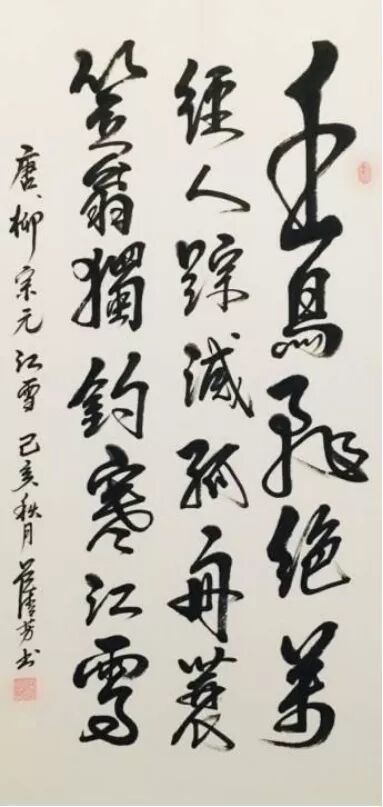 千山鳥飛絕萬
徑人踪滅孤舟蓑
笠翁獨釣寒江雪
唐、柳宗元江雪 己亥秋月 清芳书